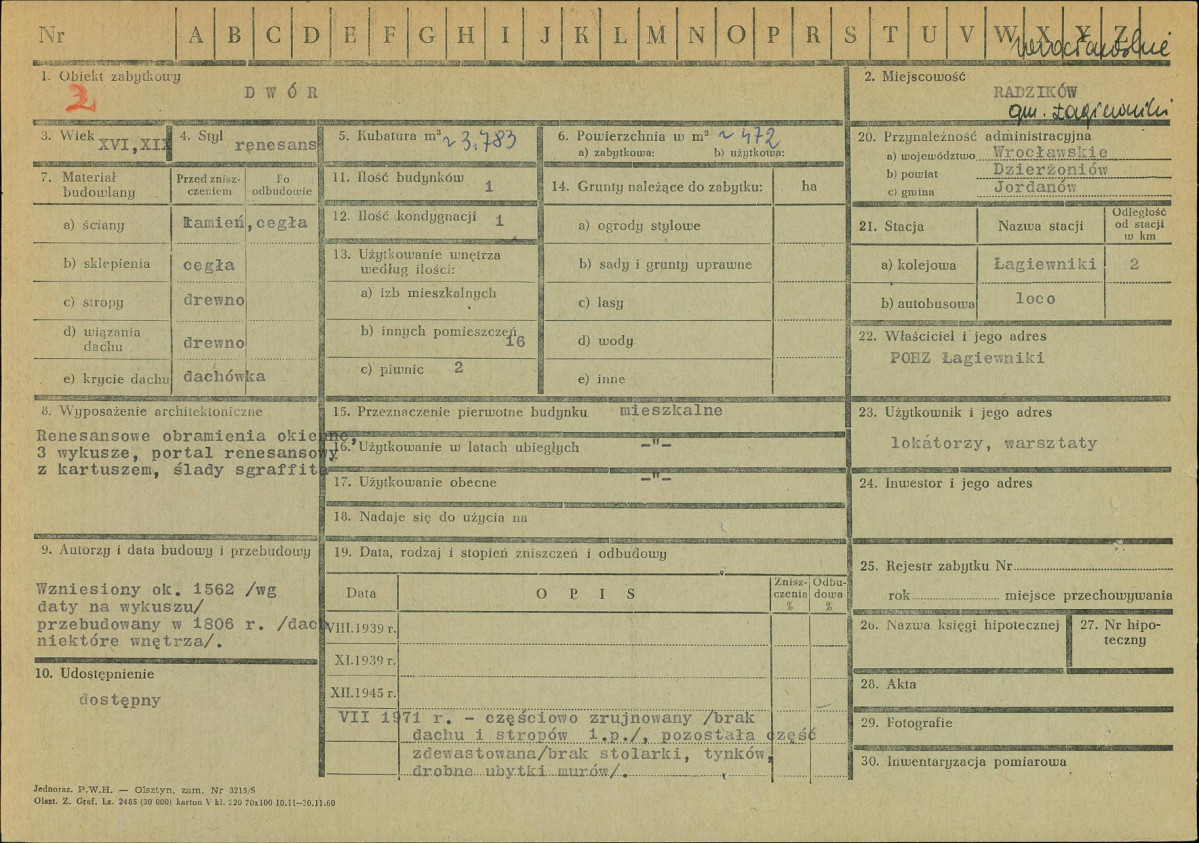 Nr A B C D E F G H I J K L M N O P R S T U V W X Y Z
wrocławskie
1. Obiekt zabytkowy
2
D W Ó R
2. Miejscowość
RADZIKÓW
gm. Łagiewniki
3. Wiek XVI, XIX
4. Styl renesans
5. Kubatura m³ ~ 3.783
6. Powierzchnia w m² ~ 472
a) zabytkowa: b) użytkowa:
7. Materiał budowlany
Przed znisz-
czeniem
Po
odbudowie
a) ściany kamień, cegła
b) sklepienia cegła
c) stropy drewno
d) wiązania
dachu drewno
e) krycie dachu dachówka
11. Ilość budynków 1
12. Ilość kondygnacji 1
13. Użytkowanie wnętrza
według ilości:
a) izb mieszkalnych
b) innych pomieszczeń 16
c) piwnic 2
14. Grunty należące do zabytku: ha
a) ogrody stylowe
b) sady i grunty uprawne
c) lasy
d) wody
e) inne
20. Przynależność administracyjna
a) województwo Wrocławskie
b) powiat Dzierżoniów
c) gmina Jordanów
21. Stacja Nazwa stacji
Odległość
od stacji
w km
a) kolejowa Łagiewniki 2
b) autobusowa loco
22. Właściciel i jego adres
POHZ Łagiewniki
8. Wyposażenie architektoniczne
Renesansowe obramienia okienne,
3 wykusze, portal renesansowy
z kartuszem, ślady sgraffita
15. Przeznaczenie pierwotne budynku mieszkalne
16. Użytkowanie w latach ubiegłych -"-
17. Użytkowanie obecne -"-
18. Nadaje się do użycia na
23. Użytkownik i jego adres
lokatorzy, warsztaty
24. Inwestor i jego adres
9. Autorzy i data budowy i przebudowy
Wzniesiony ok. 1562 /wg
daty na wykuszu/
przebudowany w 1806 r. /dach
niektóre wnętrza/.
10. Udostępnienie
dostępny
19. Data, rodzaj i stopień zniszczeń i odbudowy
Data O P I S
Znisz-
czenia
%
Odbu-
dowa
%
VIII.1939 r.
XI.1939 r.
XII.1945 r.
VII 1971 r. - częściowo zrujnowany /brak
dachu i stropów 1.p./, pozostała część
zdewastowana/brak stolarki, tynków,
drobne ubytki murów/.
25. Rejestr zabytku Nr
rok miejsce przechowywania
26. Nazwa księgi hipotecznej
27. Nr hipo-
teczny
28. Akta
29. Fotografie
30. Inwentaryzacja pomiarowa
Jednoraz. P.W.H. — Olsztyn, zam. Nr 3215/S
Olszt. Z. Graf. Lz. 2485 (30 000) karton V kl. 220 70x100 10.11—30.11.60